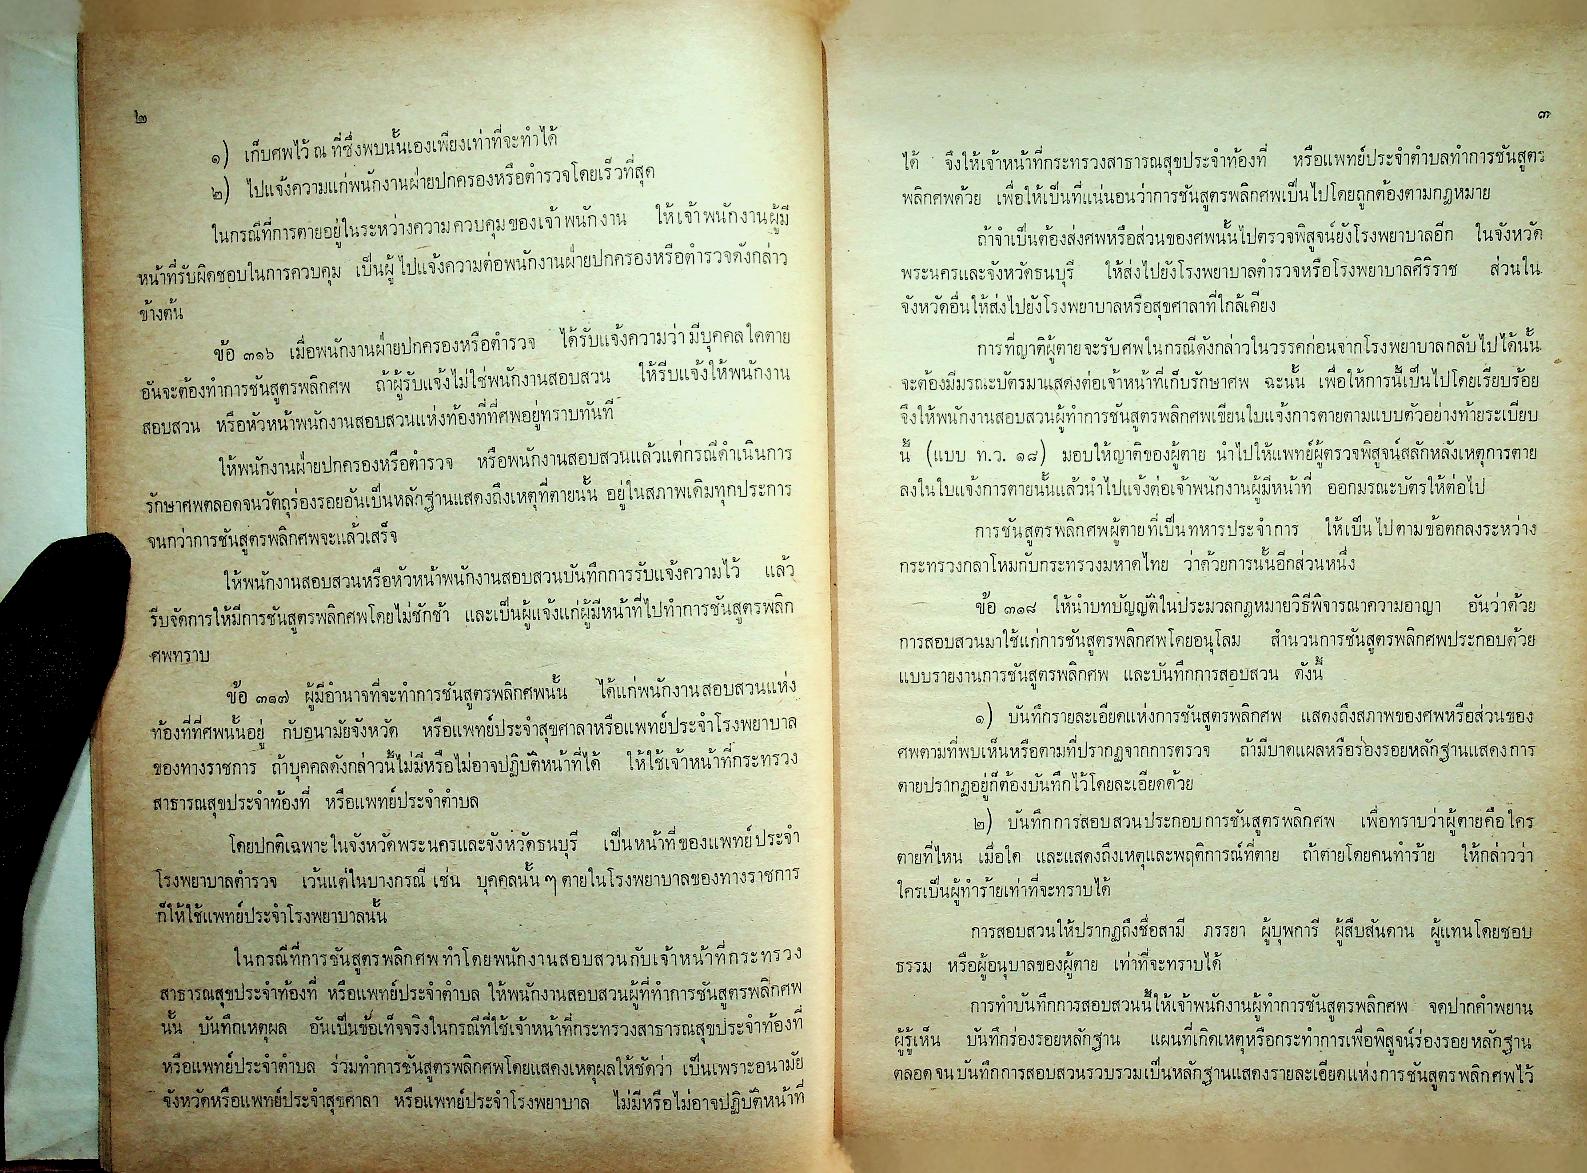 ๒
๑) เก็บศพไว้ ณ ที่ซึ่งพบนั้นเองเพียงเท่าที่จะทำได้
๒) ไปแจ้งความแก่พนักงานฝ่ายปกครองหรือตำรวจโดยเร็วที่สุด
ในกรณีที่การตายอยู่ในระหว่างความควบคุมของเจ้าพนักงาน ให้เจ้าพนักงานผู้มี
หน้าที่รับผิดชอบในการควบคุม เป็นผู้ไปแจ้งความต่อพนักงานฝ่ายปกครองหรือตำรวจดังกล่าว
ข้างต้น
ข้อ ๓๑๖ เมื่อพนักงานฝ่ายปกครองหรือตำรวจ ได้รับแจ้งความว่ามีบุคคลใดตาย
อันจะต้องทำการชันสูตรพลิกศพ ถ้าผู้รับแจ้งไม่ใช่พนักงานสอบสวน ให้รีบแจ้งให้พนักงาน
สอบสวน หรือหัวหน้าพนักงานสอบสวนแห่งท้องที่ที่ศพอยู่ทราบทันที
ให้พนักงานฝ่ายปกครองหรือตำรวจ หรือพนักงานสอบสวนแล้วแต่กรณีดำเนินการ
รักษาศพตลอดจนวัตถุร่องรอยอันเป็นหลักฐานแสดงถึงเหตุที่ตายนั้น อยู่ในสภาพเดิมทุกประการ
จนกว่าการชันสูตรพลิกศพจะแล้วเสร็จ
ให้พนักงานสอบสวนหรือหัวหน้าพนักงานสอบสวนบันทึกการรับแจ้งความไว้ แล้ว
รีบจัดการให้มีการชันสูตรพลิกศพโดยไม่ชักช้า และเป็นผู้แจ้งแก่ผู้มีหน้าที่ไปทำการชันสูตรพลิก
ศพทราบ
ข้อ ๓๑๗ ผู้มีอำนาจที่จะทำการชันสูตรพลิกศพนั้น ได้แก่พนักงานสอบสวนแห่ง
ท้องที่ที่ศพนั้นอยู่ กับอนามัยจังหวัด หรือแพทย์ประจำสุขศาลาหรือแพทย์ประจำโรงพยาบาล
ของทางราชการ ถ้าบุคคลดังกล่าวนี้ไม่มีหรือไม่อาจปฏิบัติหน้าที่ได้ ให้ใช้เจ้าหน้าที่กระทรวง
สาธารณสุขประจำท้องที่ หรือแพทย์ประจำตำบล
โดยปกติเฉพาะในจังหวัดพระนครและจังหวัดธนบุรี เป็นหน้าที่ของแพทย์ประจำ
โรงพยาบาลตำรวจ เว้นแต่ในบางกรณี เช่น บุคคลนั้น ๆ ตายในโรงพยาบาลของทางราชการ
ก็ให้ใช้แพทย์ประจำโรงพยาบาลนั้น
ในกรณีที่การชันสูตรพลิกศพทำโดยพนักงานสอบสวนกับเจ้าหน้าที่กระทรวง
สาธารณสุขประจำท้องที่ หรือแพทย์ประจำตำบล ให้พนักงานสอบสวนผู้ที่ทำการชันสูตรพลิกศพ
นั้น บันทึกเหตุผล อันเป็นข้อเท็จจริงในกรณีที่ใช้เจ้าหน้าที่กระทรวงสาธารณสุขประจำท้องที่
หรือแพทย์ประจำตำบล ร่วมทำการชันสูตรพลิกศพโดยแสดงเหตุผลให้ชัดว่า เป็นเพราะอนามัย
จังหวัดหรือแพทย์ประจำสุขศาลา หรือแพทย์ประจำโรงพยาบาล ไม่มีหรือไม่อาจปฏิบัติหน้าที่
๓
ได้ จึงให้เจ้าหน้าที่กระทรวงสาธารณสุขประจำท้องที่ หรือแพทย์ประจำตำบลทำการชันสูตร
พลิกศพด้วย เพื่อให้เป็นที่แน่นอนว่าการชันสูตรพลิกศพเป็นไปโดยถูกต้องตามกฎหมาย
ถ้าจำเป็นต้องส่งศพหรือส่วนของศพนั้นไปตรวจพิสูจน์ยังโรงพยาบาลอีก ในจังหวัด
พระนครและจังหวัดธนบุรี ให้ส่งไปยังโรงพยาบาลตำรวจหรือโรงพยาบาลศิริราช ส่วนใน
จังหวัดอื่นให้ส่งไปยังโรงพยาบาลหรือสุขศาลาที่ใกล้เคียง
การที่ญาติผู้ตายจะรับศพในกรณีดังกล่าวในวรรคก่อนจากโรงพยาบาลกลับไปได้นั้น
จะต้องมีมรณะบัตรมาแสดงต่อเจ้าหน้าที่เก็บรักษาศพ ฉะนั้น เพื่อให้การนี้เป็นไปโดยเรียบร้อย
จึงให้พนักงานสอบสวนผู้ทำการชันสูตรพลิกศพเขียนใบแจ้งการตายตามแบบตัวอย่างท้ายระเบียบ
นี้ (แบบ ท.ว. ๑๘) มอบให้ญาติของผู้ตาย นำไปให้แพทย์ผู้ตรวจพิสูจน์สลักหลังเหตุการตาย
ลงในใบแจ้งการตายนั้นแล้วนำไปแจ้งต่อเจ้าพนักงานผู้มีหน้าที่ ออกมรณะบัตรให้ต่อไป
การชันสูตรพลิกศพผู้ตายที่เป็นทหารประจำการ ให้เป็นไปตามข้อตกลงระหว่าง
กระทรวงกลาโหมกับกระทรวงมหาดไทย ว่าด้วยการนั้นอีกส่วนหนึ่ง
ข้อ ๓๑๘ ให้นำบทบัญญัติในประมวลกฎหมายวิธีพิจารณาความอาญา อันว่าด้วย
การสอบสวนมาใช้แก่การชันสูตรพลิกศพโดยอนุโลม สำนวนการชันสูตรพลิกศพประกอบด้วย
แบบรายงานการชันสูตรพลิกศพ และบันทึกการสอบสวน ดังนี้
๑) บันทึกรายละเอียดแห่งการชันสูตรพลิกศพ แสดงถึงสภาพของศพหรือส่วนของ
ศพตามที่พบเห็นหรือตามที่ปรากฏจากการตรวจ ถ้ามีบาดแผลหรือร่องรอยหลักฐานแสดงการ
ตายปรากฏอยู่ก็ต้องบันทึกไว้โดยละเอียดด้วย
๒) บันทึกการสอบสวนประกอบการชันสูตรพลิกศพ เพื่อทราบว่าผู้ตายคือใคร
ตายที่ไหน เมื่อใด และแสดงถึงเหตุและพฤติการณ์ที่ตาย ถ้าตายโดยคนทำร้าย ให้กล่าวว่า
ใครเป็นผู้ทำร้ายเท่าที่จะทราบได้
การสอบสวนให้ปรากฏถึงชื่อสามี ภรรยา ผู้บุพการี ผู้สืบสันดาน ผู้แทนโดยชอบ
ธรรม หรือผู้อนุบาลของผู้ตาย เท่าที่จะทราบได้
การทำบันทึกการสอบสวนนี้ให้เจ้าพนักงานผู้ทำการชันสูตรพลิกศพ จดปากคำพยาน
ผู้รู้เห็น บันทึกร่องรอยหลักฐาน แผนที่เกิดเหตุหรือกระทำการเพื่อพิสูจน์ร่องรอยหลักฐาน
ตลอดจนบันทึกการสอบสวนรวบรวมเป็นหลักฐานแสดงรายละเอียดแห่งการชันสูตรพลิกศพไว้